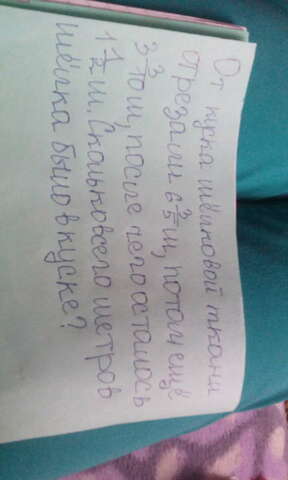 От куска шёлковой ткани
отрезали 6 2/5 м, потом ещё
3 3/10 м, после чего осталось
1 1/2 м. Сколько всего метров
шёлка было в куске?